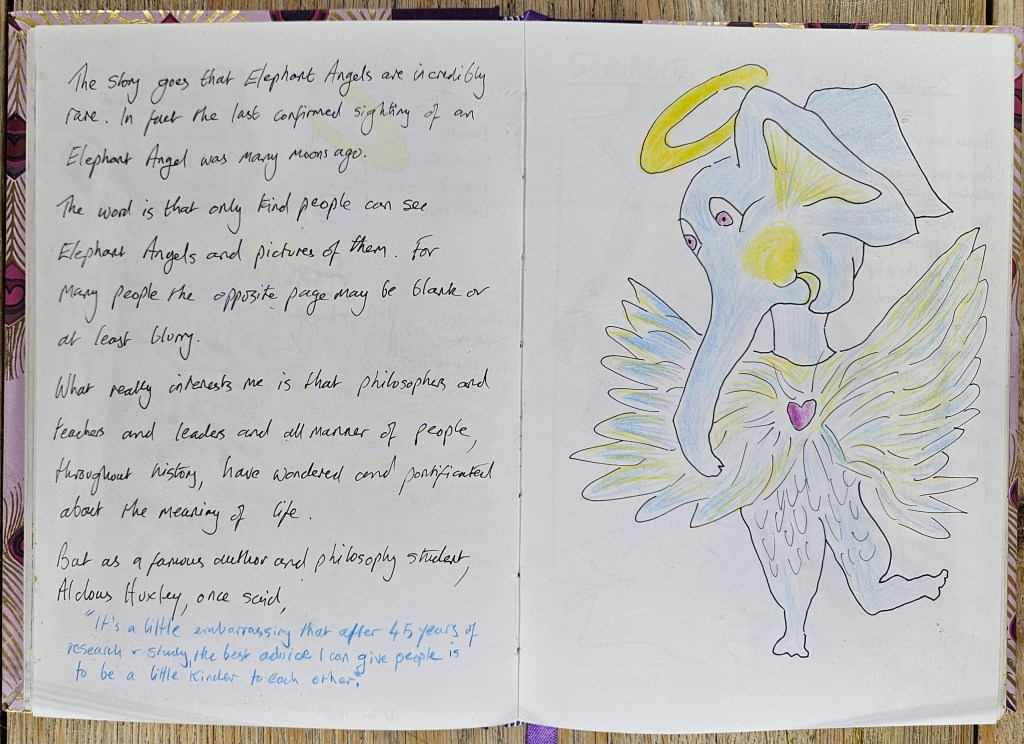 The story goes that Elephant Angels are incredibly
rare. In fact the last confirmed sighting of an
Elephant Angel was many moons ago.
The word is that only kind people can see
Elephant Angels and pictures of them. For
many people the opposite page may be blank or
at least blurry.
What really interests me is that philosophers and
teachers and leaders and all manner of people,
throughout history, have wondered and pontificated
about the meaning of life.
But as a famous author and philosophy student,
Aldous Huxley, once said,
"It's a little embarrassing that after 45 years of
research & study, the best advice I can give people is
to be a little kinder to each other."